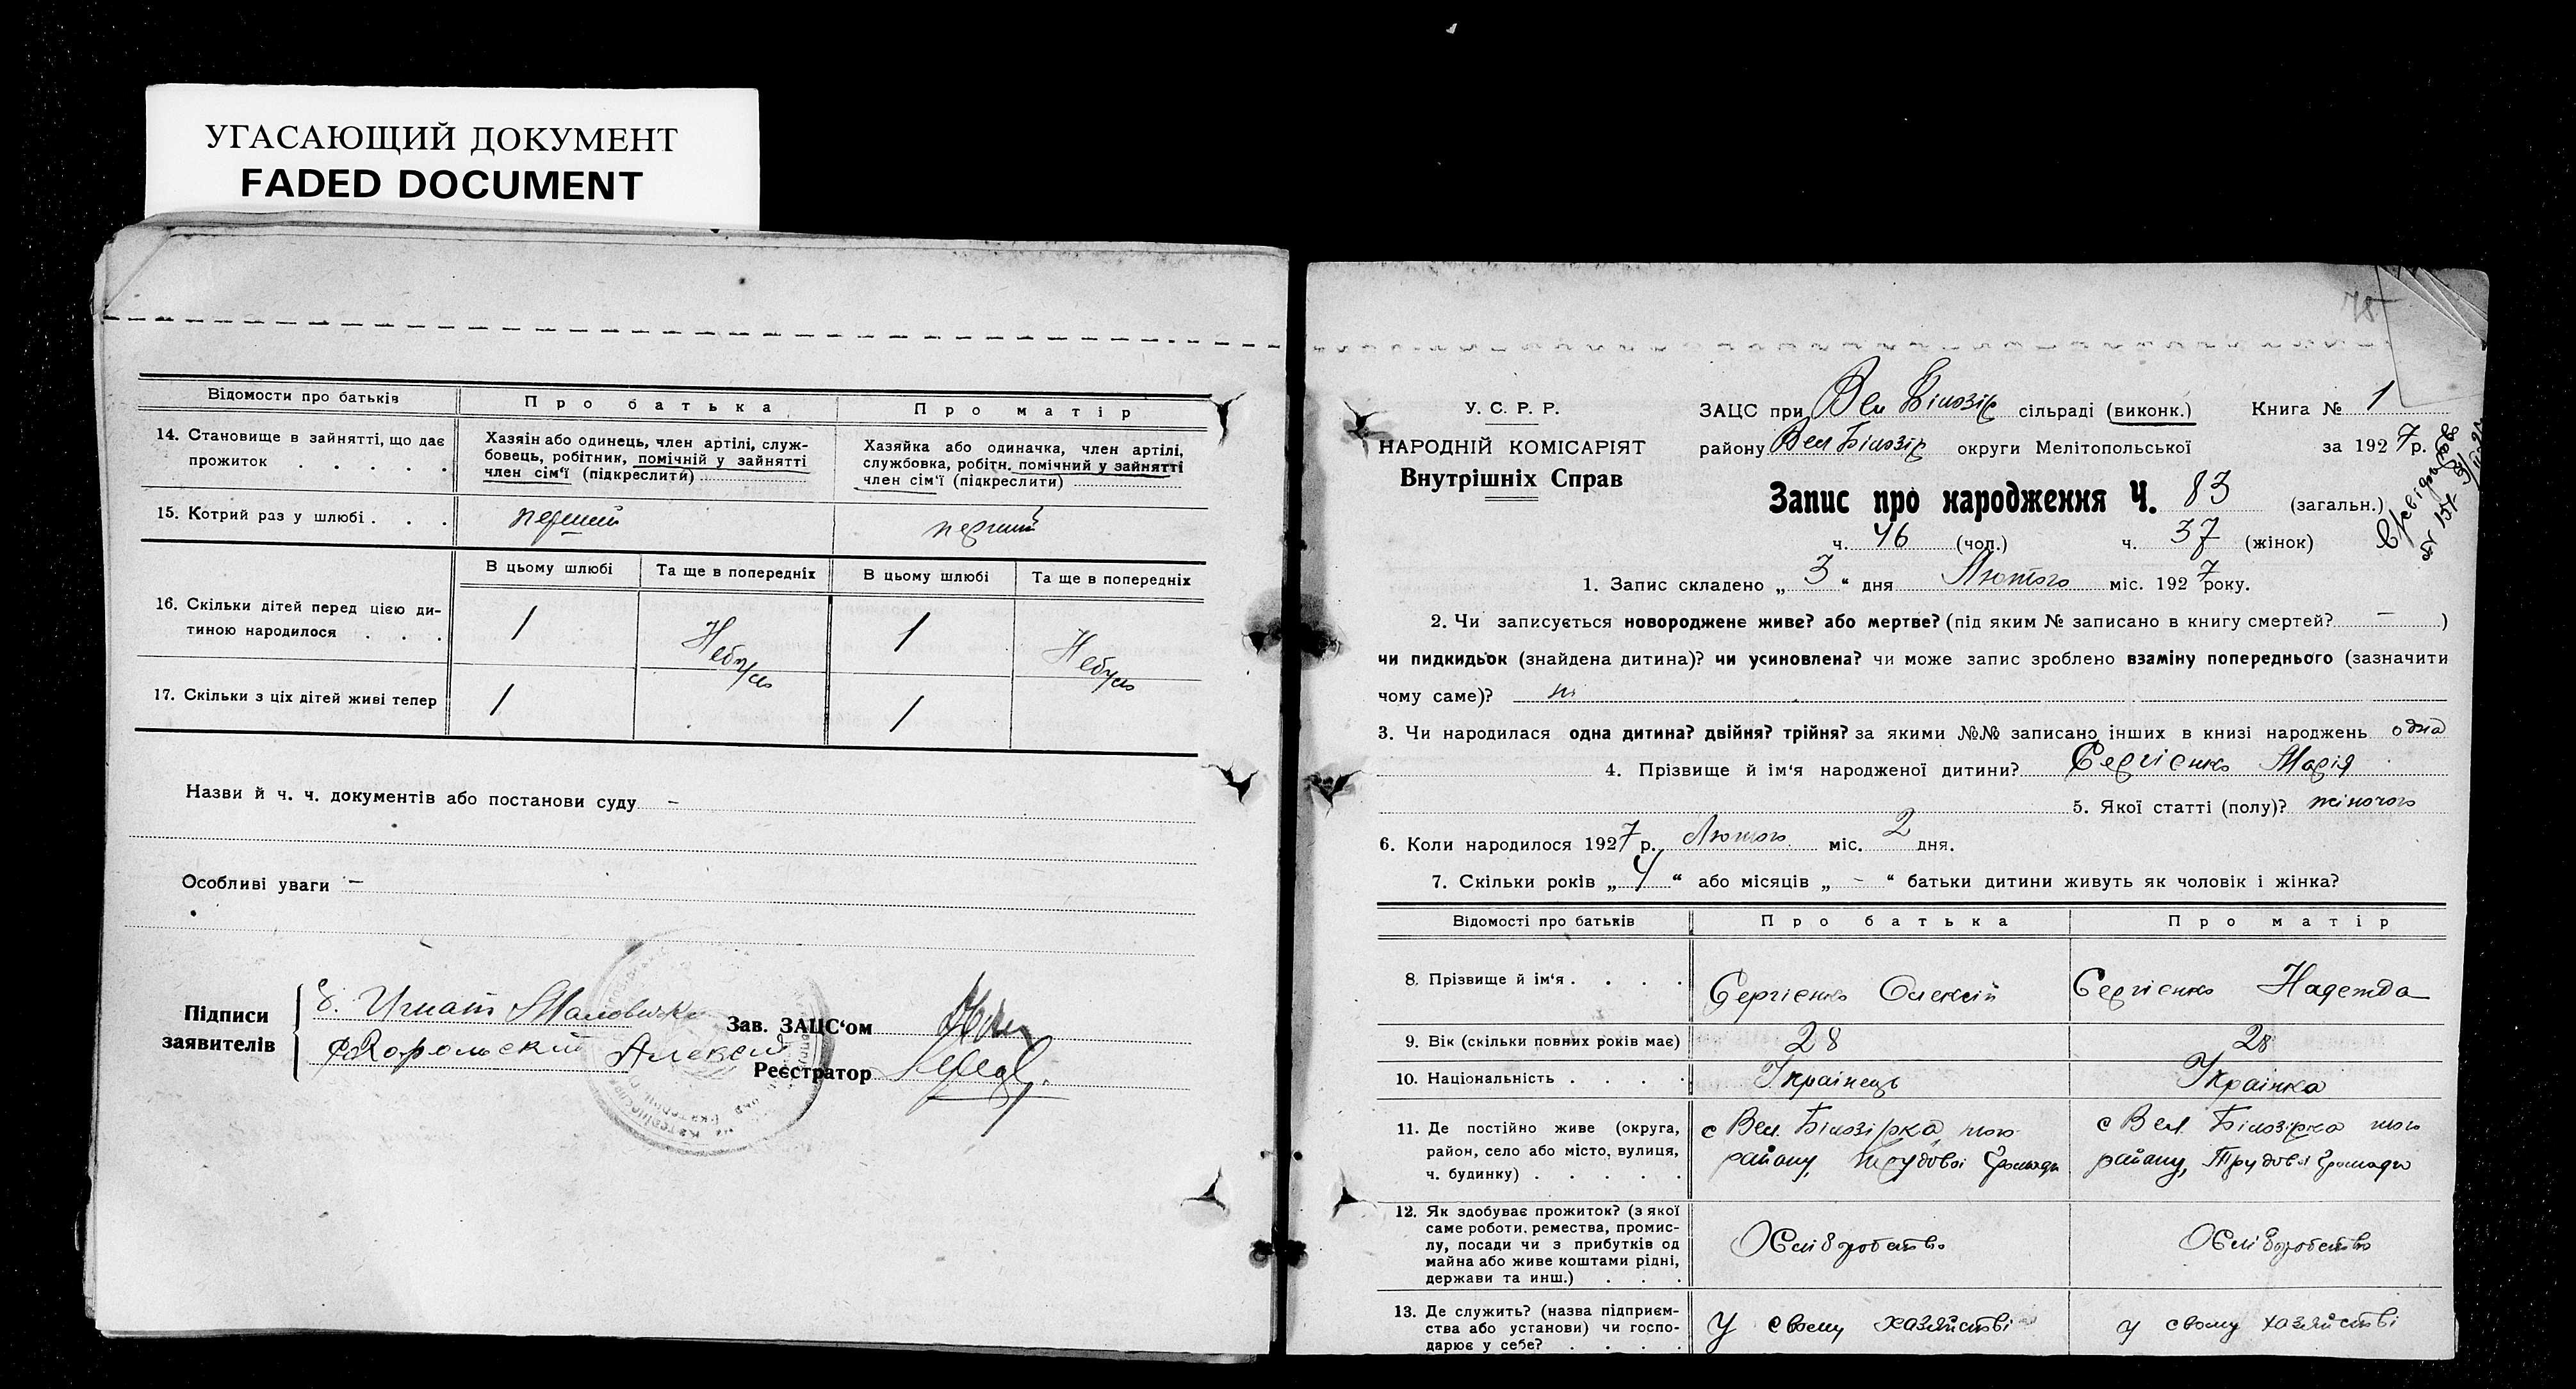 УГАСАЮЩИЙ ДОКУМЕНТ
FADED DOCUMENT
Відомости про батьків
Про батька
Про матір
14. Становище в зайнятті, що дає
прожиток . . . . .
Хазяін або одинець, член артілі, служ-
бовець, робітник, помічній у зайнятті
член сім'ї (підкреслити)
Хазяйка або одиначка, член артілі,
службовка, робітн. помічний у зайнятті
член сім'ї (підкреслити)
15. Котрий раз у шлюбі . . .
перший
перший
В цьому шлюбі
Та ще в попередніх
В цьому шлюбі
Та ще в попередніх
16. Скільки дітей перед цією ди-
тиною народилося . . .
1
Небуло
1
Небуло
17. Скільки з ціх дітей живі тепер
1
1
Назви й ч. ч. документів або постанови суду –
Особливі уваги –
Підписи
заявителів
Игнат
Алексей
Зав. ЗАЦС'ом
Реєстратор
75
У. С. Р. Р.
НАРОДНІЙ КОМІСАРІЯТ
Внутрішніх Справ
ЗАЦС при Вел Білозір сільраді (виконк.) Книга № 1
району Вел Білозір округи Мелітопольської за 1927 р.
Запис про народження Ч. 83 (загальн.)
ч. 46 (чол.) ч. 37 (жінок)
1. Запис складено „ 3 “ дня Лютого міс. 1927 року.
2. Чи записується новороджене живе? або мертве? (під яким № записано в книгу смертей? – )
чи пидкидьок (знайдена дитина)? чи усиновлена? чи може запис зроблено взаміну попереднього (зазначити
чому саме)? ні
3. Чи народилася одна дитина? двійня? трійня? за якими №№ записано інших в книзі народжень одна
4. Прізвище й ім'я народженої дитини? Сергієнко Марія
5. Якої статті (полу)? жіночого
6. Коли народилося 1927 р. Лютого міс. 2 дня.
7. Скільки років „ 4 “ або місяців „ – “ батьки дитини живуть як чоловік і жінка?
Відомості про батьків
Про батька
Про матір
8. Прізвище й ім'я . . . .
Сергієнко Олексій
Сергієнко Надежда
9. Вік (скільки повних років має)
28
28
10. Національність . . . .
Украінець
Украінка
11. Де постійно живе (округа,
район, село або місто, вулиця,
ч. будинку) . . . . .
с Вел. Білозірка того
району, Трудової Громади
с Вел. Білозірка того
району, Трудової Громади
12. Як здобуває прожиток? (з якої
саме роботи, ремества, промис-
лу, посади чи з прибутків од
майна або живе коштами рідні,
держави та инш.) . . .
Хліборобство
Хліборобство
13. Де служить? (назва підприєм-
ства або установи) чи госпо-
дарює у себе? . . . .
У своему хазяйстві
у свому хазяйстві